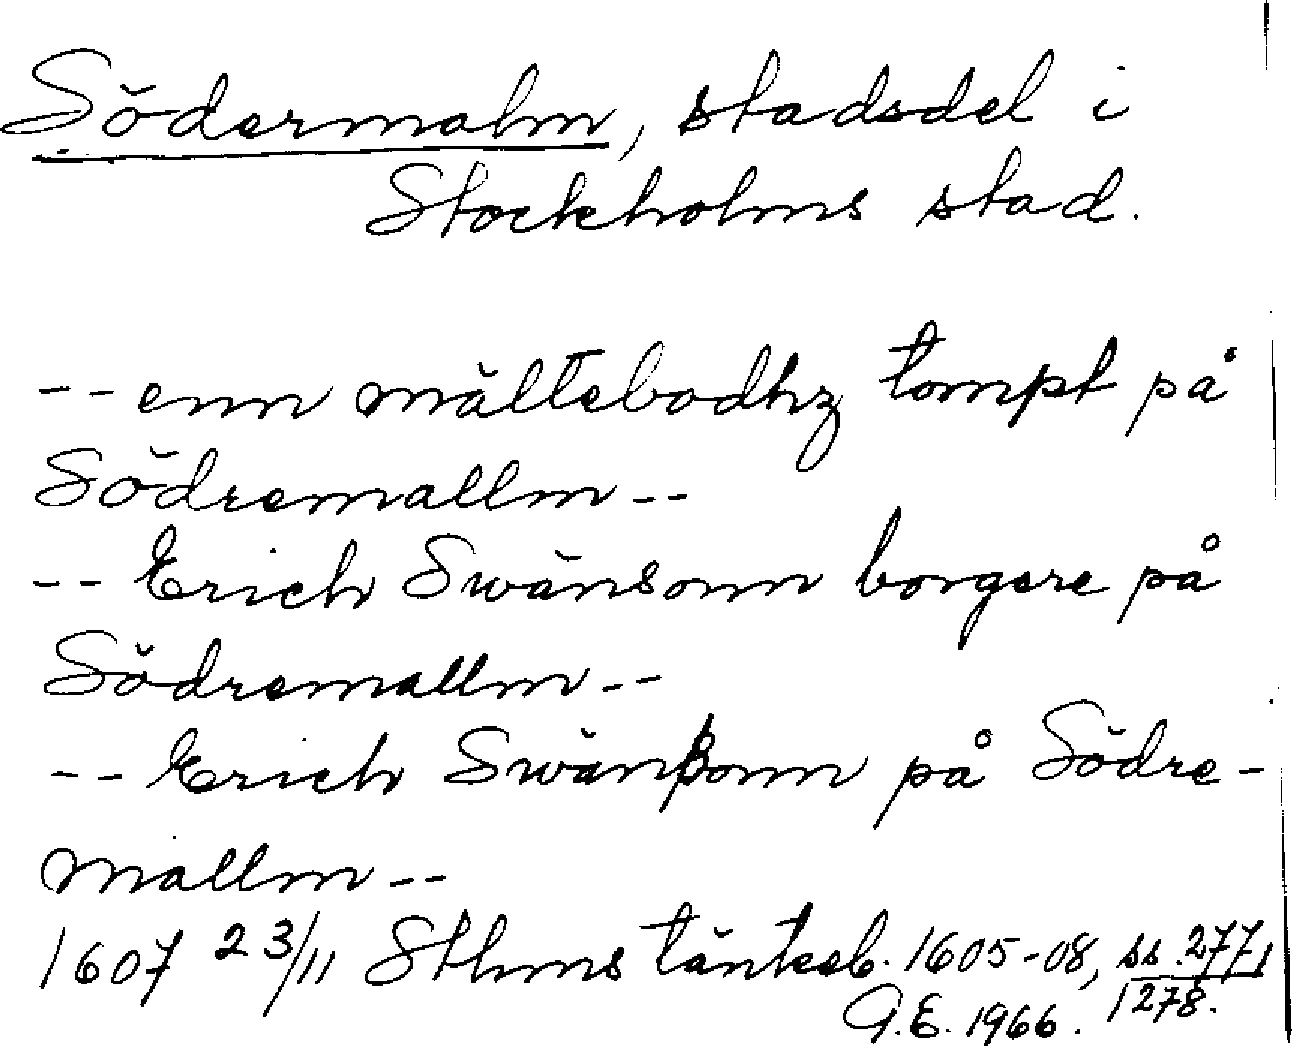 Södermalm, stadsdel i
Stockholms stad.
-- enn mältebodhz tompt på
Södremallm --
-- Erich Swänsonn borgere på
Södremallm --
-- Erich Swänßonn på Södre-
mallm --
1607 23/11 Sthms tänkeb. 1605-08, ss. 277,
278.
G.E. 1966.